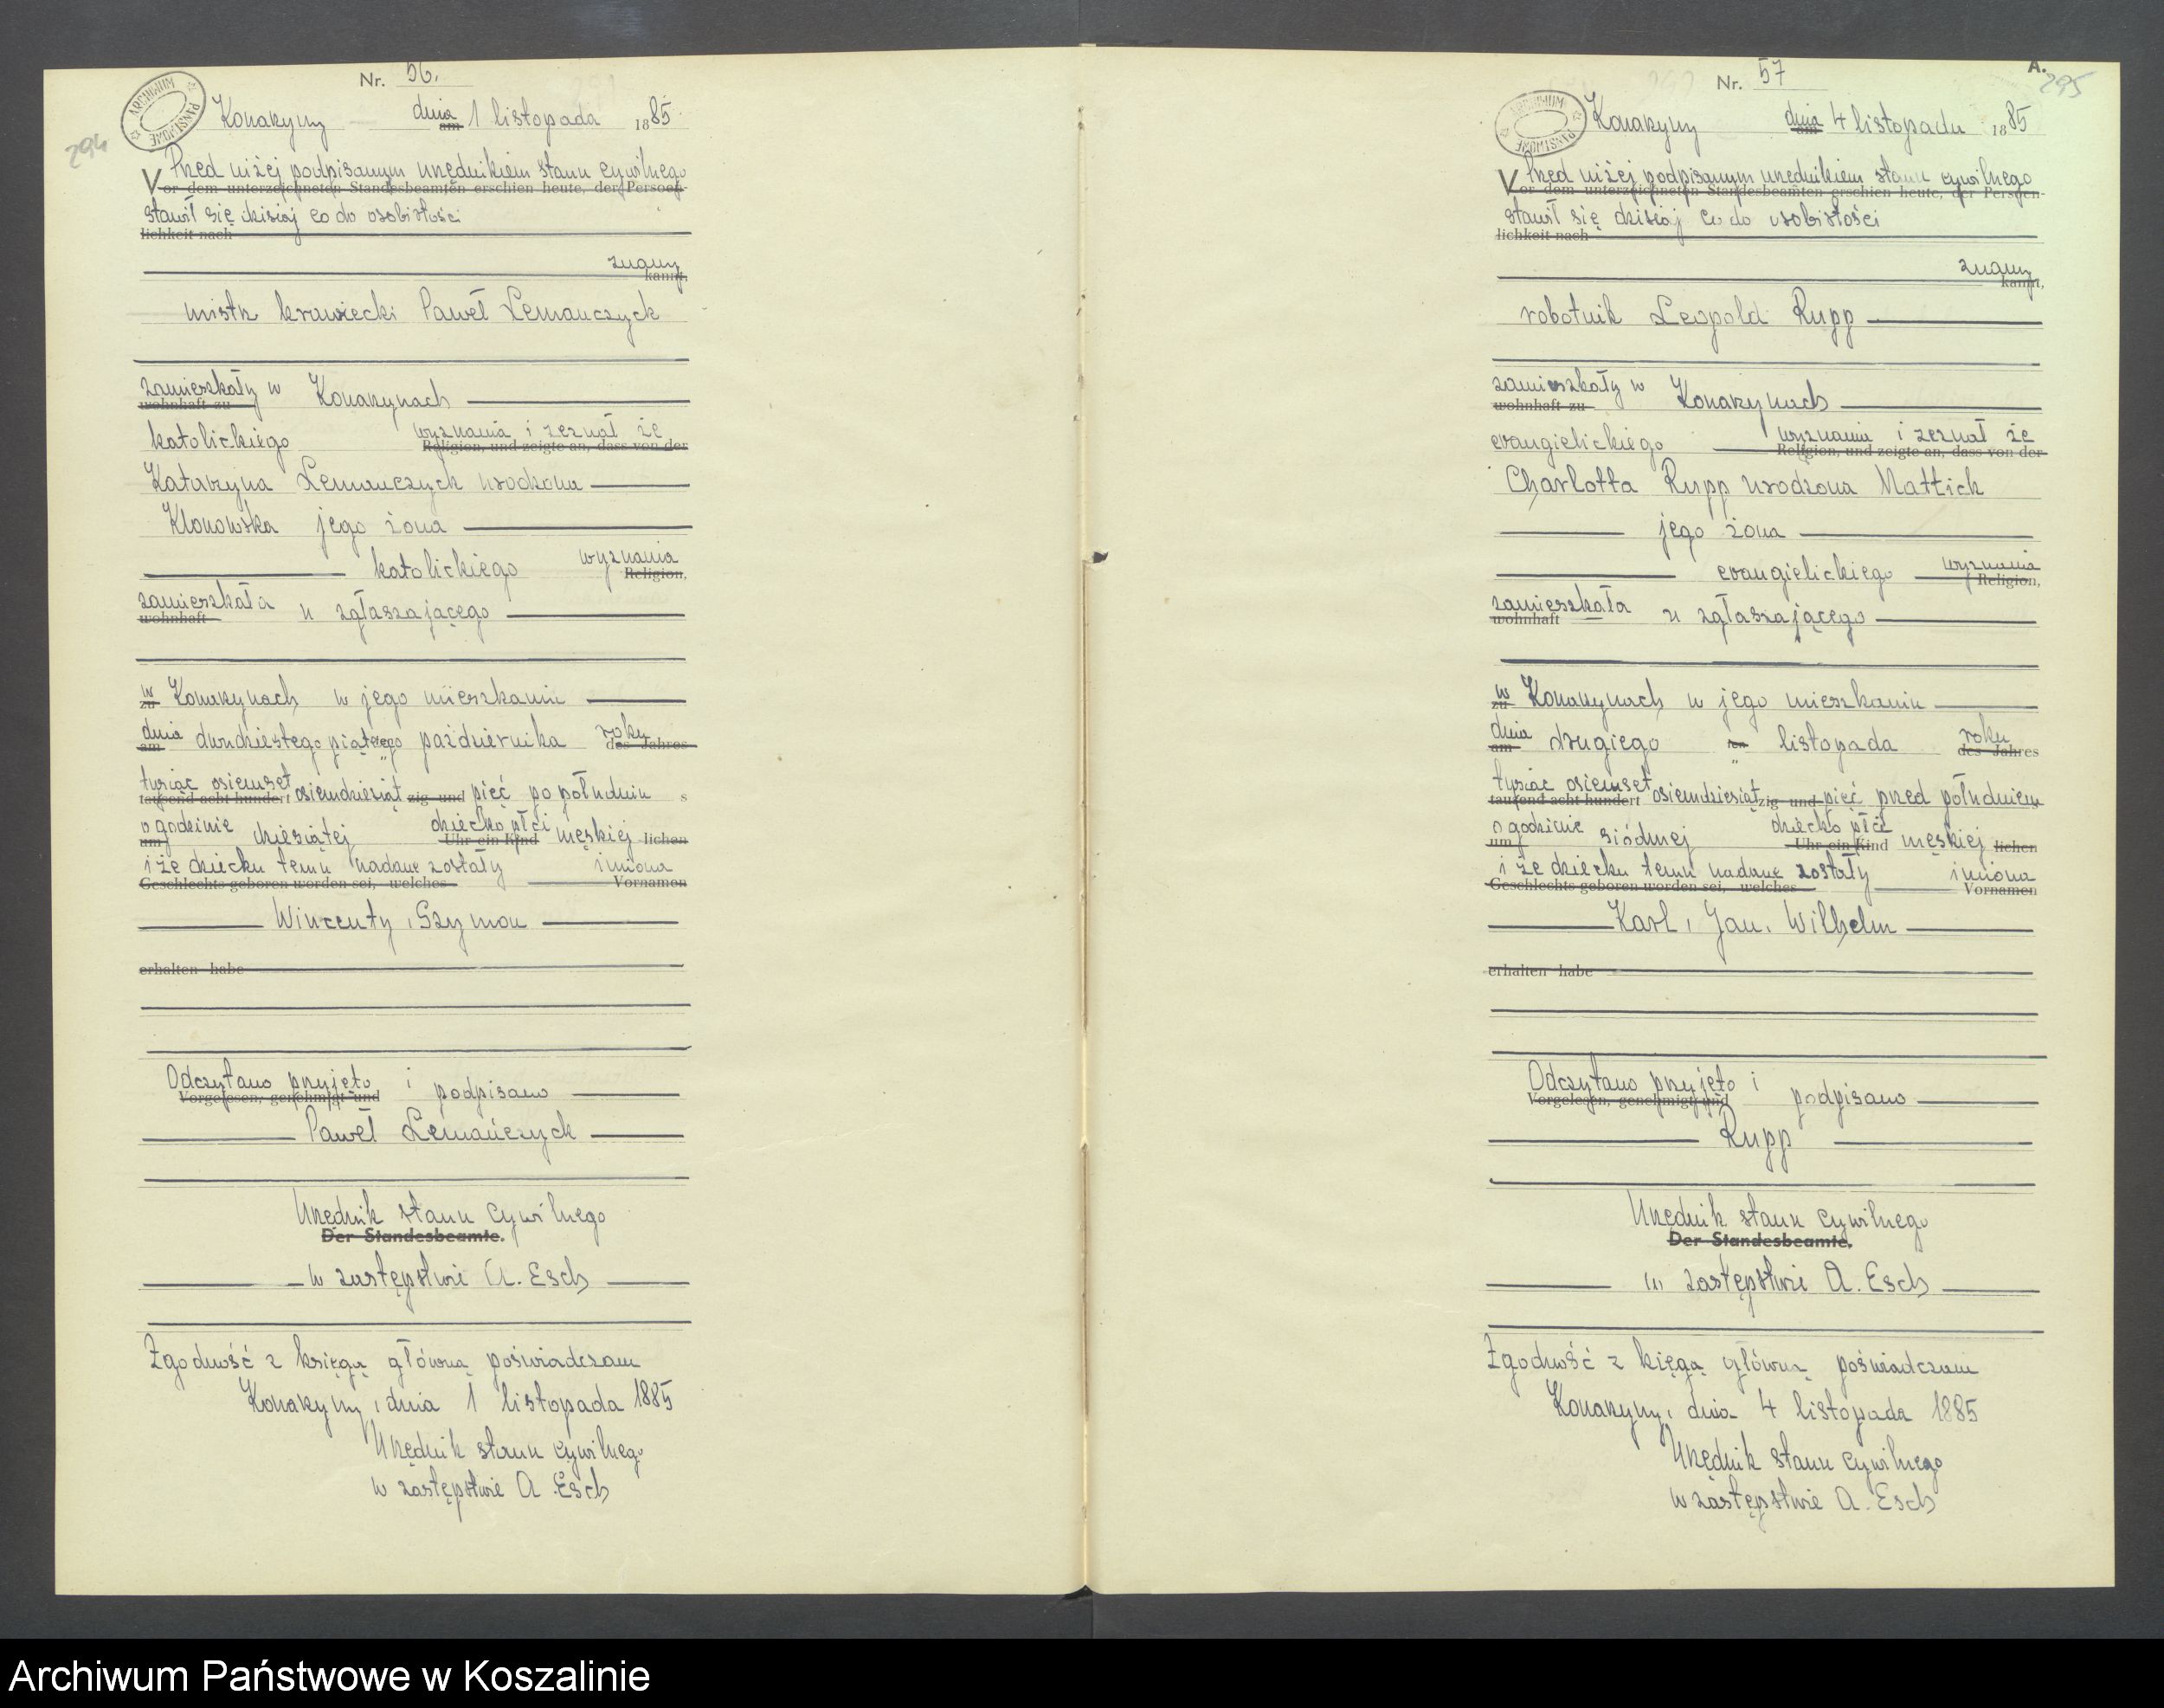 Nr. 56.
294
ARCHIWUM PAŃSTWOWE
Konarzyny dnia am 1 listopada 1885
Przed niżej podpisanym urzędnikiem stanu cywilnego
Vor dem unterzeichneten Standesbeamten erschien heute, der Persön-
stawił się dzisiaj co do osobistości
lichkeit nach
znany
kannt,
mistrz krawiecki Paweł Lemanczyck
zamieszkały w Konarzynach
wohnhaft zu
katolickiego wyznania i zeznał że
Religion, und zeigte an, dass von der
Katarzyna Lemanczyck urodzona
Klonowska jego żona
katolickiego wyznania
Religion,
zamieszkała u zgłaszającego
wohnhaft
w Konarzynach w jego mieszkaniu
zu
dnia dwudziestego piątego października roku
am des Jahres
tysiąc osiemset osiemdziesiąt zig und pięć po południu s
tausend acht hundert
o godzinie dziesiątej dziecko płci męskiej lichen
um Uhr ein Kind
i że dziecku temu nadane zostały imiona
Geschlechts geboren worden sei, welches Vornamen
Wincenty, Szymon
erhalten habe
Odczytano przyjęto i podpisano
Vorgelesen, genehmigt und
Paweł Lemańczyck
Urzędnik stanu cywilnego
Der Standesbeamte.
w zastępstwie A. Esch
Zgodność z księgą główną poświadczam
Konarzyny, dnia 1 listopada 1885
Urzędnik stanu cywilnego
w zastępstwie A. Esch
Nr. 57
A.
295
ARCHIWUM PAŃSTWOWE
Konarzyny dnia am 4 listopada 1885
Przed niżej podpisanym urzędnikiem stanu cywilnego
Vor dem unterzeichneten Standesbeamten erschien heute, der Persön-
stawił się dzisiaj co do osobistości
lichkeit nach
znany
kannt,
robotnik Leopold Rupp
zamieszkały w Konarzynach
wohnhaft zu
evangielickiego wyznania i zeznał że
Religion, und zeigte an, dass von der
Charlotta Rupp urodzona Mattick
jego żona
evangielickiego wyznania
Religion,
zamieszkała u zgłaszającego
wohnhaft
w Konarzynach w jego mieszkaniu
zu
dnia drugiego ten listopada roku
am des Jahres
tysiąc osiemset osiemdziesiąt zig und pięć przed południem
tausend acht hundert
o godzinie siódmej dziecko płci męskiej lichen
um Uhr ein Kind
i że dziecku temu nadane zostały imiona
Geschlechts geboren worden sei, welches Vornamen
Karl, Jan, Wilhelm
erhalten habe
Odczytano przyjęto i podpisano
Vorgelesen, genehmigt und
Rupp
Urzędnik stanu cywilnego
Der Standesbeamte.
w zastępstwie A. Esch
Zgodność z kięgą główną poświadczam
Konarzyny, dnia 4 listopada 1885
Urzędnik stanu cywilnego
w zastępstwie A. Esch
Archiwum Państwowe w Koszalinie